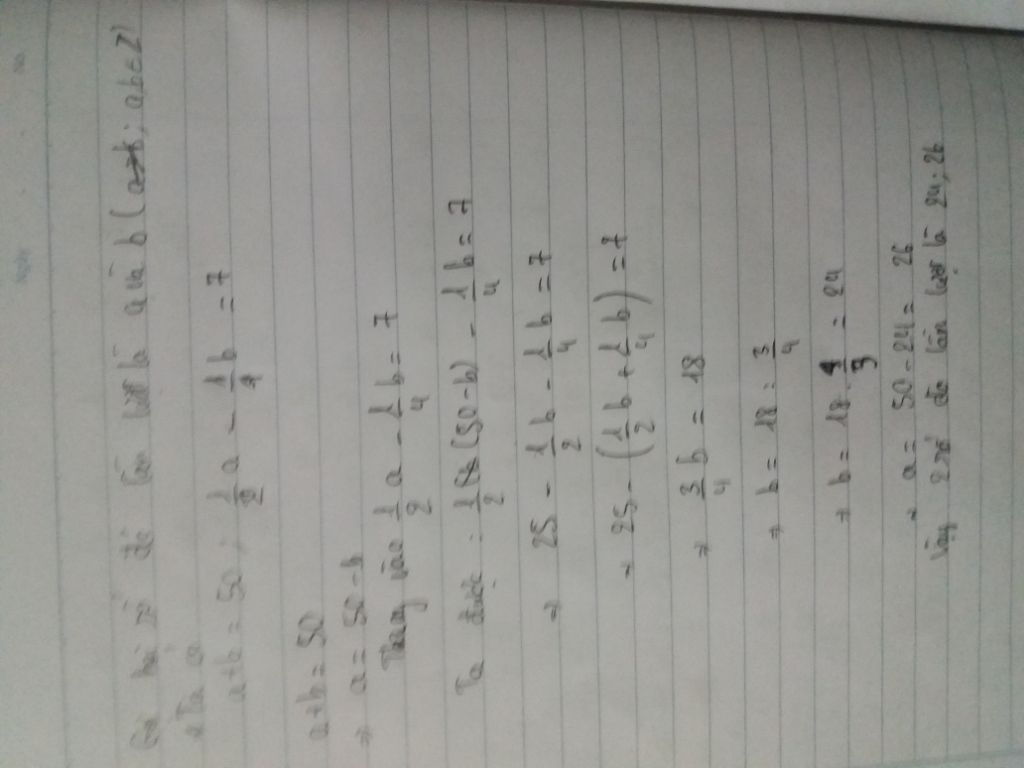 Gọi hai số đó lần lượt là a và b (a>b; a,b∈Z)
Ta có
a+b = 50 ; 1/2 a - 1/4 b = 7
a+b = 50
⇒ a = 50-b
Thay vào 1/2 a - 1/4 b = 7
Ta được : 1/2 (50-b) - 1/4 b = 7
⇒ 25 - 1/2 b - 1/4 b = 7
⇒ 25 - (1/2 b + 1/4 b) = 7
⇒ 3/4 b = 18
⇒ b = 18 : 3/4
⇒ b = 18 . 4/3 = 24
⇒ a = 50 - 24 = 26
Vậy 2 số đó lần lượt là 24; 26